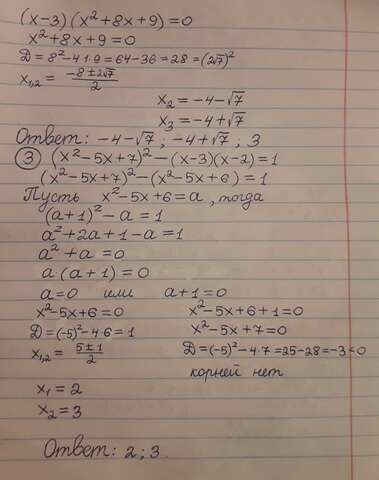 (x-3)(x²+8x+9)=0
x²+8x+9=0
D=8²-4·1·9=64-36=28=(2√7)²
x₁,₂=(-8±2√7)/2
x₂=-4-√7
x₃=-4+√7
Ответ: -4-√7; -4+√7; 3
③ (x²-5x+7)²-(x-3)(x-2)=1
(x²-5x+7)²-(x²-5x+6)=1
Пусть x²-5x+6=a, тогда
(a+1)²-a=1
a²+2a+1-a=1
a²+a=0
a(a+1)=0
a=0 или a+1=0
x²-5x+6=0 x²-5x+6+1=0
D=(-5)²-4·6=1 x²-5x+7=0
x₁,₂=(5±1)/2 D=(-5)²-4·7=25-28=-3<0
корней нет
x₁=2
x₂=3
Ответ: 2; 3.